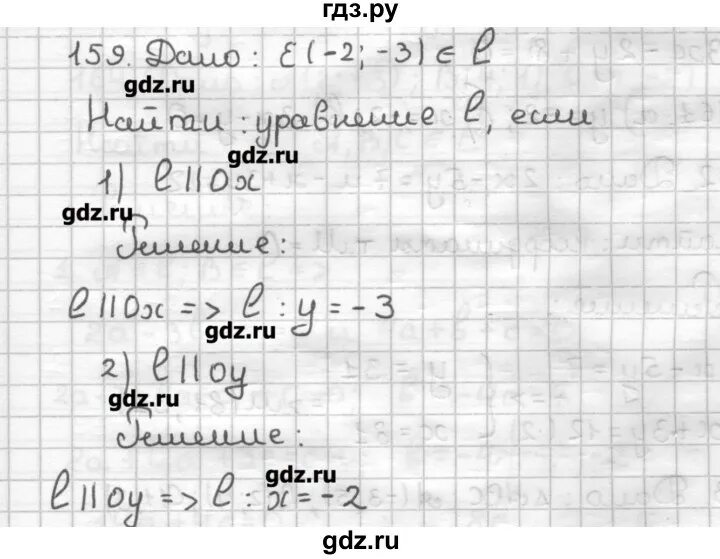 гдз.ру
159. Дано: E(-2; -3) ∈ l
gdz.ru
Найти: уравнение l, если
gdz.ru
1) l || Ox
gdz.ru
Решение:
l || Ox => l : y = -3
gdz.ru
2) l || Oy
gdz.ru
Решение:
gdz.ru
l || Oy => l : x = -2
gdz.ru